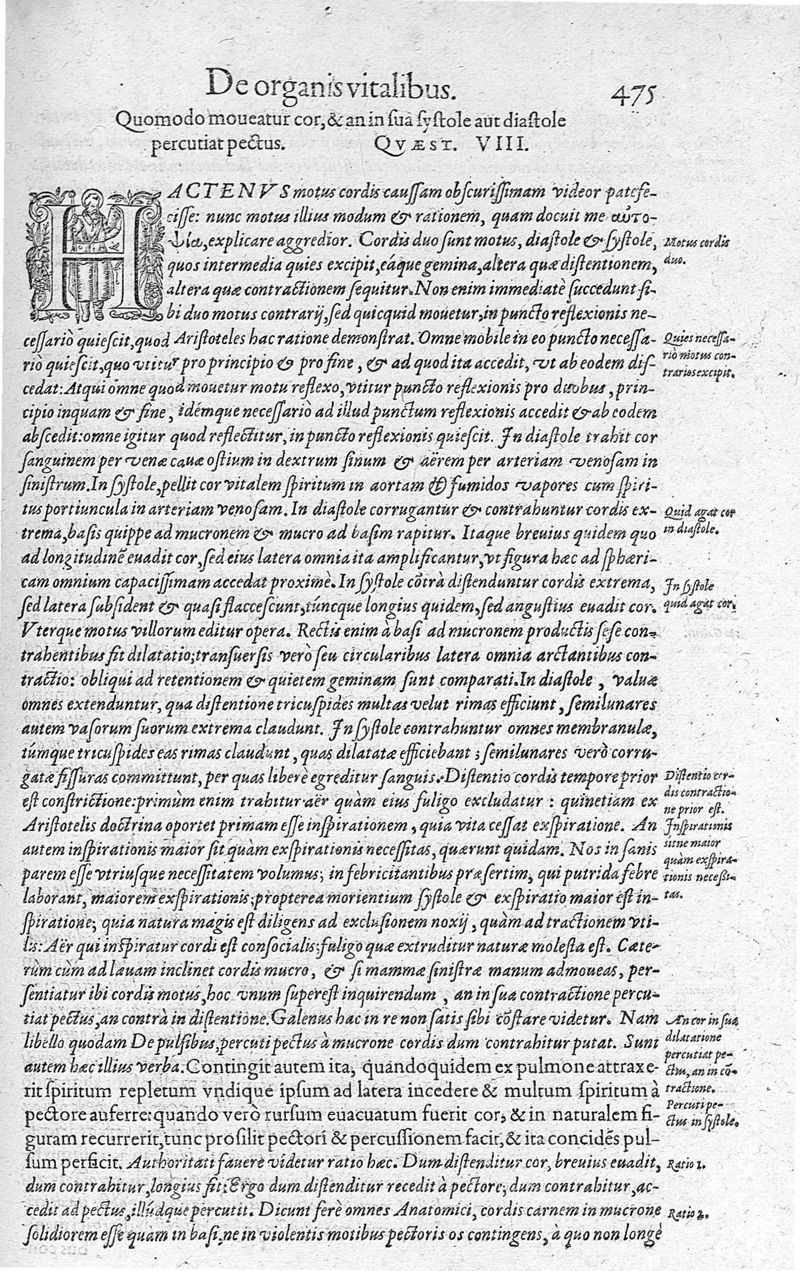 De organis vitalibus. 475
Quomodo moveatur cor, & an in sua systole aut diastole
percutiat pectus. QVÆST. VIII.
HACTENVS motus cordis caussam obscurissimam videor patefe-
cisse: nunc motus illius modum & rationem, quam docuit me αὐτο-
ψία, explicare aggredior. Cordis duo sunt motus, diastole & systole,
quos intermedia quies excipit, eáque gemina, altera quæ distentionem,
altera quæ contractionem sequitur. Non enim immediatè succedunt si-
bi duo motus contrarij, sed quicquid mouetur, in puncto reflexionis ne-
cessariò quiescit, quod Aristoteles hac ratione demonstrat. Omne mobile in eo puncto necessa-
riò quiescit, quo vtitur pro principio & pro fine, & ad quod ita accedit, vt ab eodem dis-
cedat: Atqui omne quod mouetur motu reflexo, vtitur puncto reflexionis pro duobus, prin-
cipio inquam & fine, idémque necessariò ad illud punctum reflexionis accedit & ab eodem
abscedit: omne igitur quod reflectitur, in puncto reflexionis quiescit. In diastole trahit cor
sanguinem per venæ cauæ ostium in dextrum sinum & aërem per arteriam venosam in
sinistrum. In systole, pellit cor vitalem spiritum in aortam & fumidos vapores cum spiri-
tus portiuncula in arteriam venosam. In diastole corrugantur & contrahuntur cordis ex-
trema, basis quippe ad mucronem & mucro ad basim rapitur. Itaque breuius quidem quo
ad longitudinẽ euadit cor, sed eius latera omnia ita amplificantur, vt figura hæc ad sphæri-
cam omnium capacissimam accedat proximè. In systole cõtrà distenduntur cordis extrema,
sed latera subsident & quasi flaccescunt, túncque longius quidem, sed angustius euadit cor.
Vterque motus villorum editur opera. Rectis enim à basi ad mucronem productis sese con-
trahentibus fit dilatatio; transuersis verò seu circularibus latera omnia arctantibus con-
tractio: obliqui ad retentionem & quietem geminam sunt comparati. In diastole, valuæ
omnes extenduntur, qua distentione tricuspides multas velut rimas efficiunt, semilunares
autem vasorum suorum extrema claudunt. In systole contrahuntur omnes membranulæ,
túmque tricuspides eas rimas claudunt, quas dilatatæ efficiebant; semilunares verò corru-
gatæ fissuras committunt, per quas liberè egreditur sanguis. Distentio cordis tempore prior
est constrictione: primùm enim trahitur aër quàm eius fuligo excludatur: quinetiam ex
Aristotelis doctrina oportet primam esse inspirationem, quia vita cessat exspiratione. An
autem inspirationis maior sit quàm exspirationis necessitas, quærunt quidam. Nos in sanis
parem esse vtriusque necessitatem volumus; in febricitantibus præsertim, qui putrida febre
laborant, maiorem exspirationis; propterea morientium systole & exspiratio maior est in-
spiratione; quia natura magis est diligens ad exclusionem noxij, quàm ad tractionem vti-
lis: Aër qui inspiratur cordi est consocialis: fuligo quæ extruditur naturæ molesta est. Cæte-
rùm cùm ad læuam inclinet cordis mucro, & si mammæ sinistræ manum admoueas, per-
sentiatur ibi cordis motus, hoc vnum superest inquirendum, an in sua contractione percu-
tiat pectus, an contrà in distentione. Galenus hac in re non satis sibi cõstare videtur. Nam
libello quodam De pulsibus, percuti pectus à mucrone cordis dum contrahitur putat. Sunt
autem hæc illius verba. Contingit autem ita, quandoquidem ex pulmone attraxe-
rit spiritum repletum vndique ipsum ad latera incedere & multum spiritum à
pectore auferre: quando verò rursum euacuatum fuerit cor, & in naturalem fi-
guram recurrerit, tunc prosilit pectori & percussionem facit, & ita concidẽs pul-
sum perficit. Authoritati fauere videtur ratio hæc. Dum distenditur cor, breuius euadit,
dum contrahitur, longius fit; Ergo dum distenditur recedit à pectore; dum contrahitur, ac-
cedit ad pectus, illúdque percutit. Dicunt ferè omnes Anatomici, cordis carnem in mucrone
solidiorem esse quam in basi, ne in violentis motibus pectoris os contingens, à quo non longè
Motus cordis
duo.
Quies necessa-
riò motus con-
trarios excipit.
Quid agat cor
in diastole.
In systole
quid agat cor.
Distentio cor-
dis contractio-
ne prior est.
Inspirationis
sitne maior
quàm exspira-
tionis necessi-
tas.
An cor in sua
dilatatione
percutiat pe-
ctus, an in cõ-
tractione.
Percuti pe-
ctus in systole.
Ratio 1.
Ratio 2.